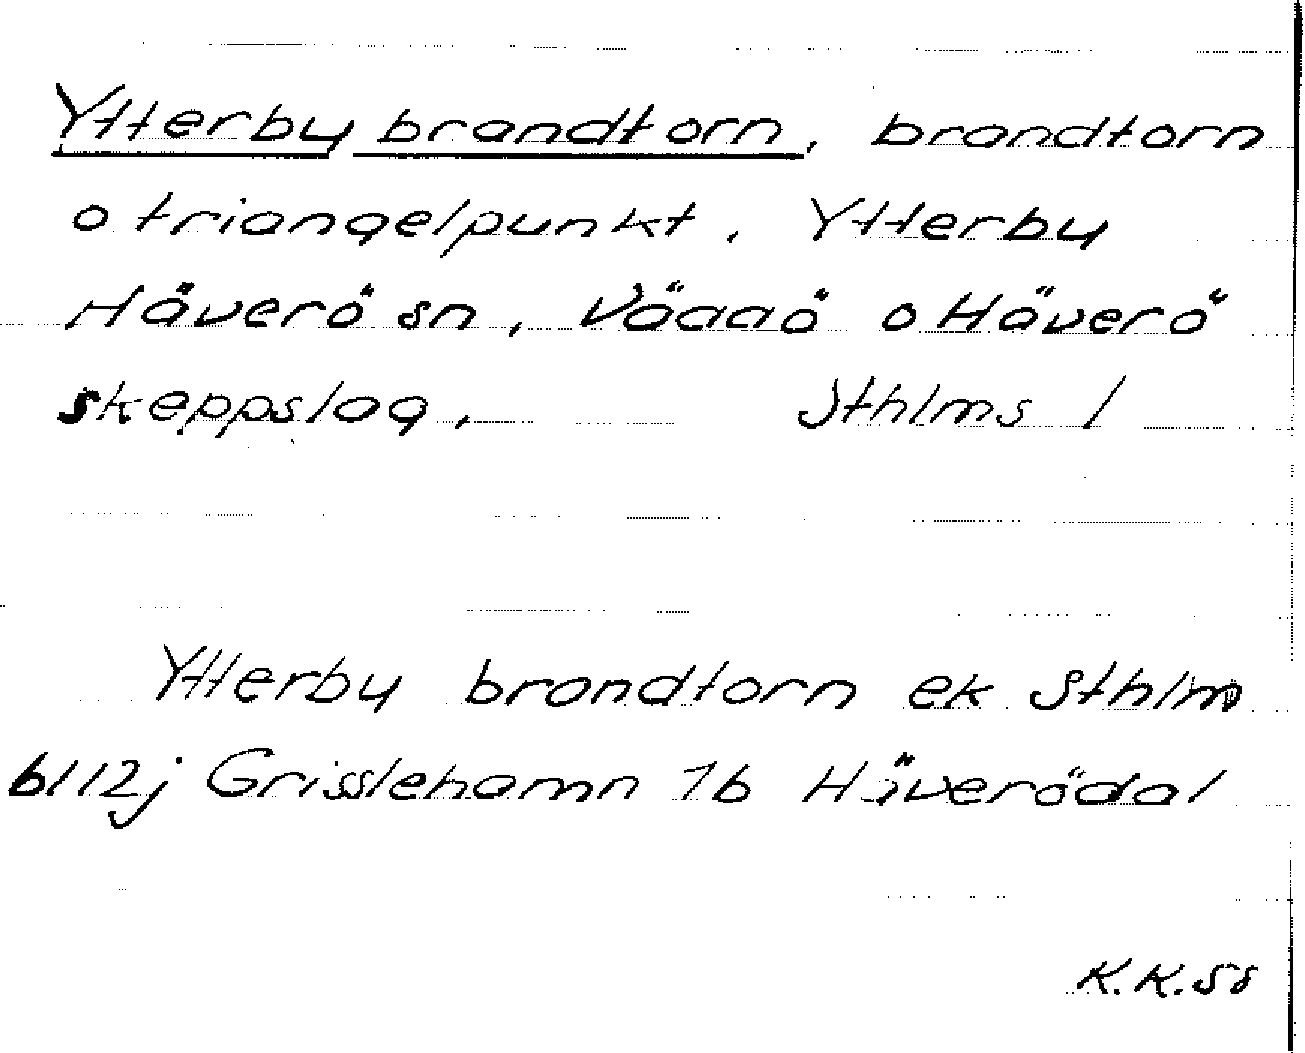 Ytterby brandtorn, brandtorn
o triangelpunkt. Ytterby
Häverö sn, Väddö o Häverö
skeppslag, Sthlms l
Ytterby brandtorn ek Sthlm
bl 12j Grisslehamn 1b Häverödal
K.K.